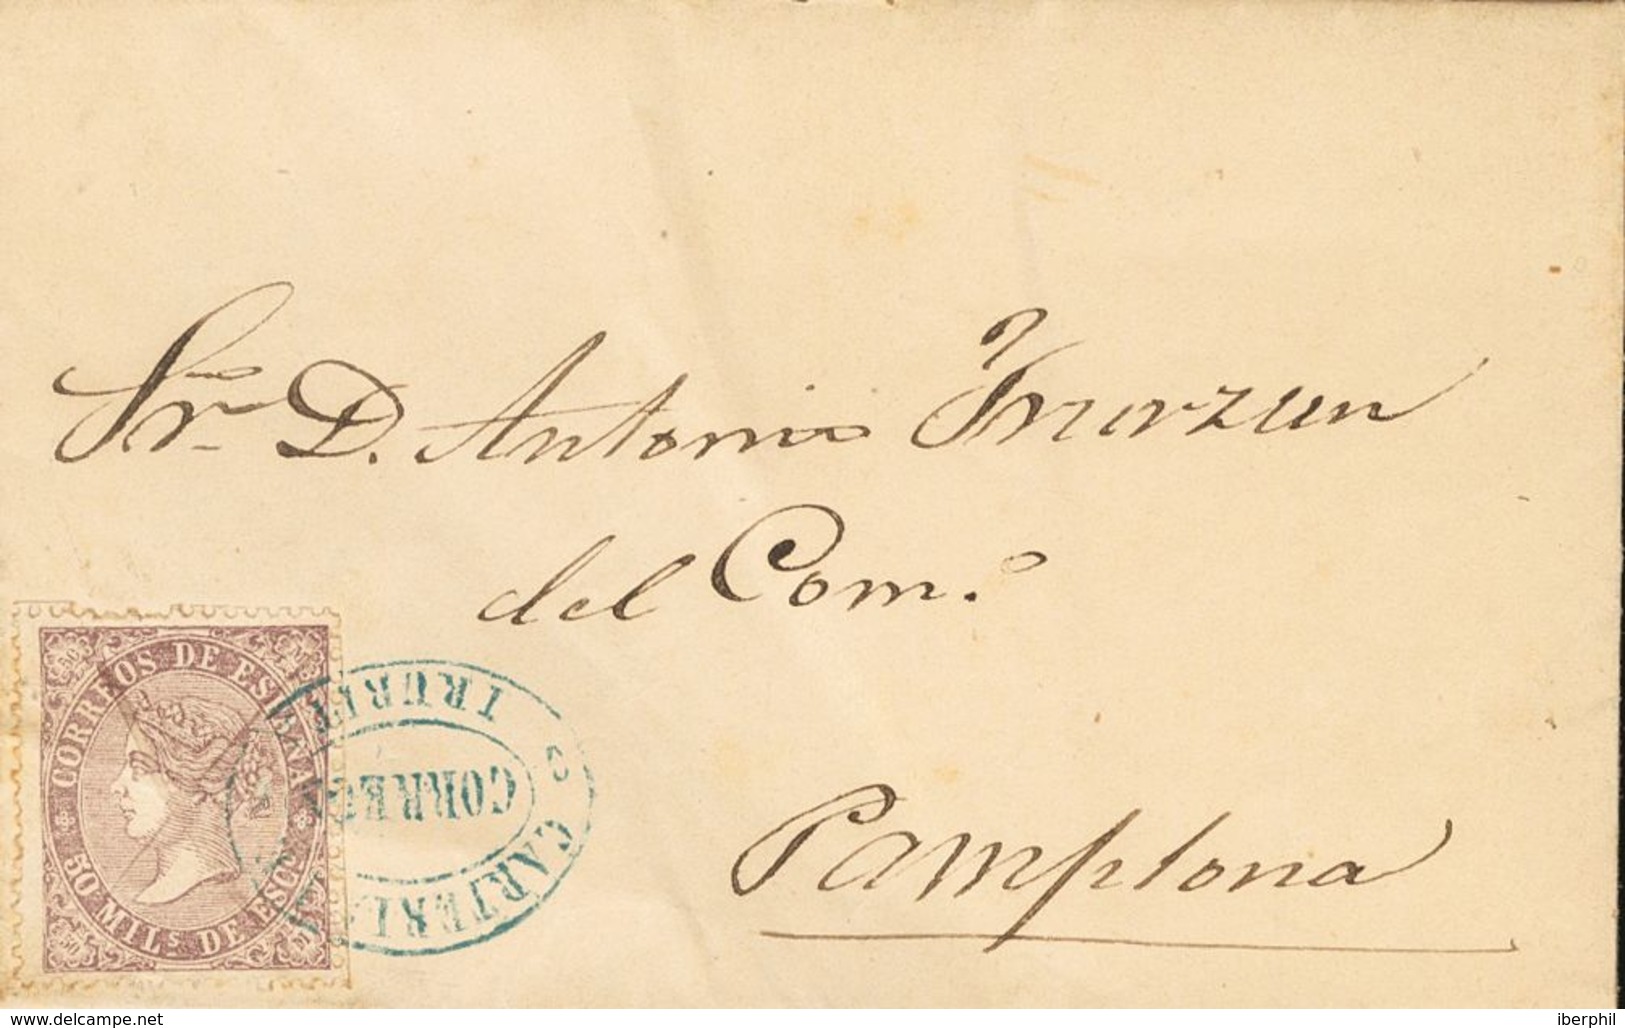 Sr. D. Antonio Irurzun
del Com.o
Pamplona
CORREOS DE ESPAÑA
50 MILs DE ESCO
CARTERI
CORREO
IRURI
www.delcampe.net
iberphil